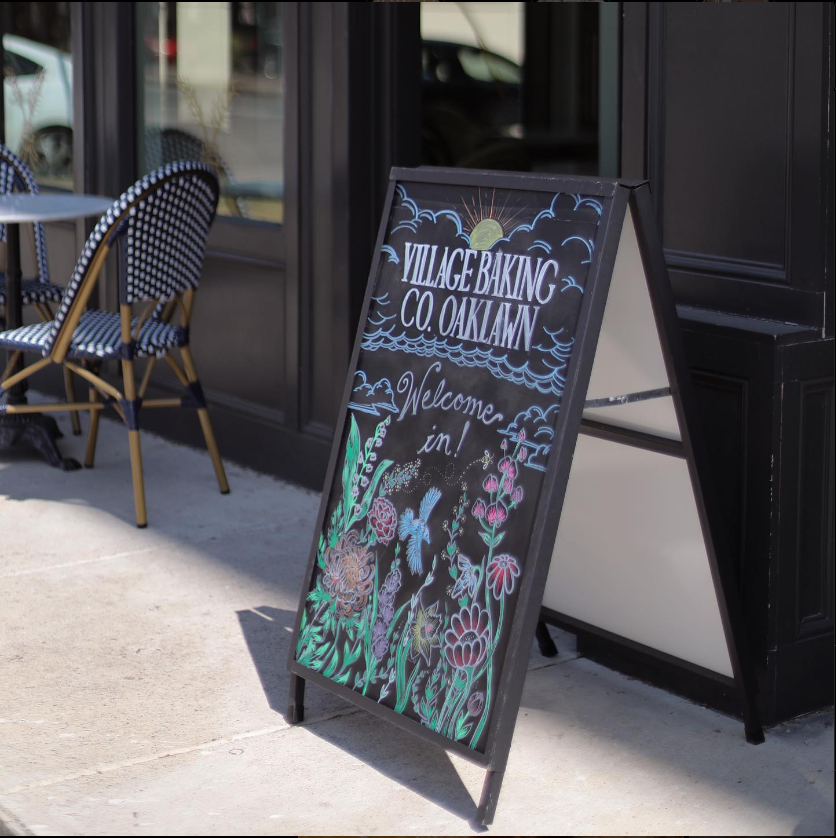 VILLAGE BAKING
CO. OAKLAWN
Welcome
in!